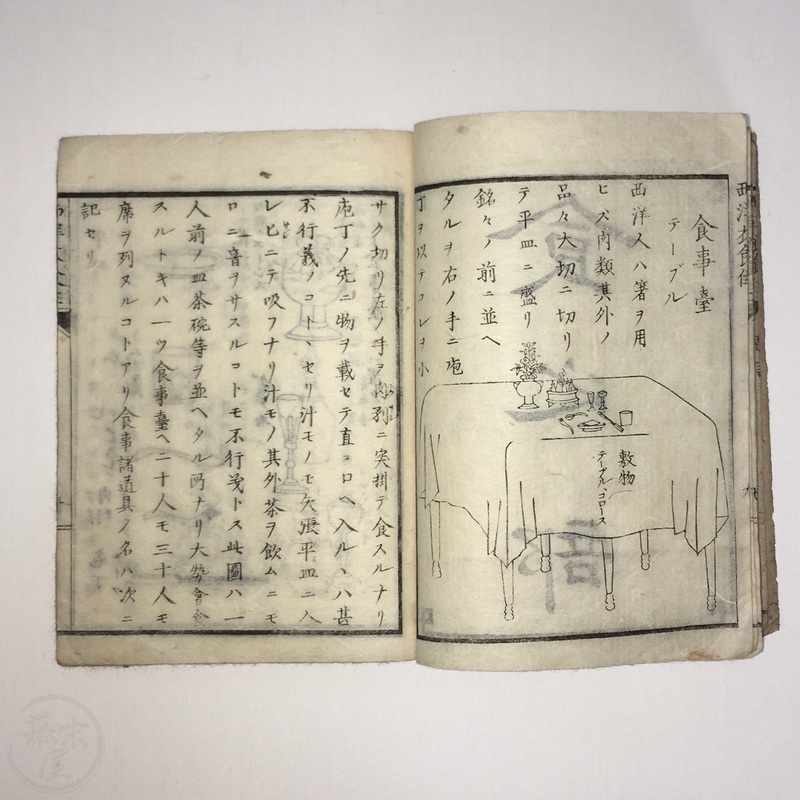 西洋衣食住
食事臺
テーブル
西洋人ハ箸ヲ用
ヒズ肉類其外ノ
品々大切ニ切リ
テ平皿ニ盛リ
銘々ノ前ニ並ヘ
タルヲ右ノ手ニ庖
丁ヲ以テコレヲ小
敷物
テーブル、コロース
サク切リ左ノ手ヲ肉刺ニ突掛テ食スルナリ
庖丁ノ先ニ物ヲ載セテ直ニ口ヘ入ルヽハ甚
不行義ノコトヽセリ汁モノモ矢張平皿ニ入
レヒニテ吸フナリ汁モノ其外茶ヲ飲ムニモ
口ニ音ヲサスルコトモ不行義トス此圖ハ一
人前ノ皿茶碗等ヲ並ヘタル所ナリ大勢會食
スルトキハ一ツ食事臺ヘ二十人モ三十人モ
席ヲ列スルコトアリ食事諸道具ノ名ハ次ニ
記セリ
幕末屋